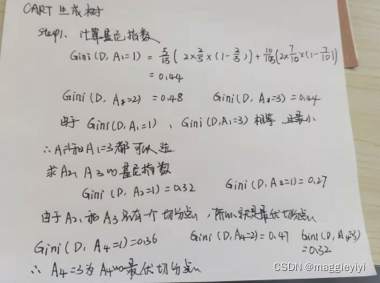 CART 生成树
Step1. 计算基尼指数
Gini (D, A₁=1) = 5/15 ( 2×2/5×(1-2/5) ) + 10/15 (2×7/10×(1-7/10))
= 0.44
Gini (D, A₁=2) = 0.48 Gini (D, A₁=3) = 0.44
由于 Gini(D,A₁=1)、Gini(D,A₁=3) 相等 且最小
∴ A₁=1和A₁=3都可以选
求A₂, A₃的基尼指数
Gini (D, A₂=1) = 0.32 Gini (D, A₃=1) = 0.27
由于A₂, 和A₃只有一个切分点, 所以就是最优切分点
Gini (D, A₄=1) = 0.36 Gini (D,A₄=2) = 0.47 Gini (D,A₄=3)
= 0.32
∴ A₄=3为A₄的最优切分点
CSDN @maggieyiyi